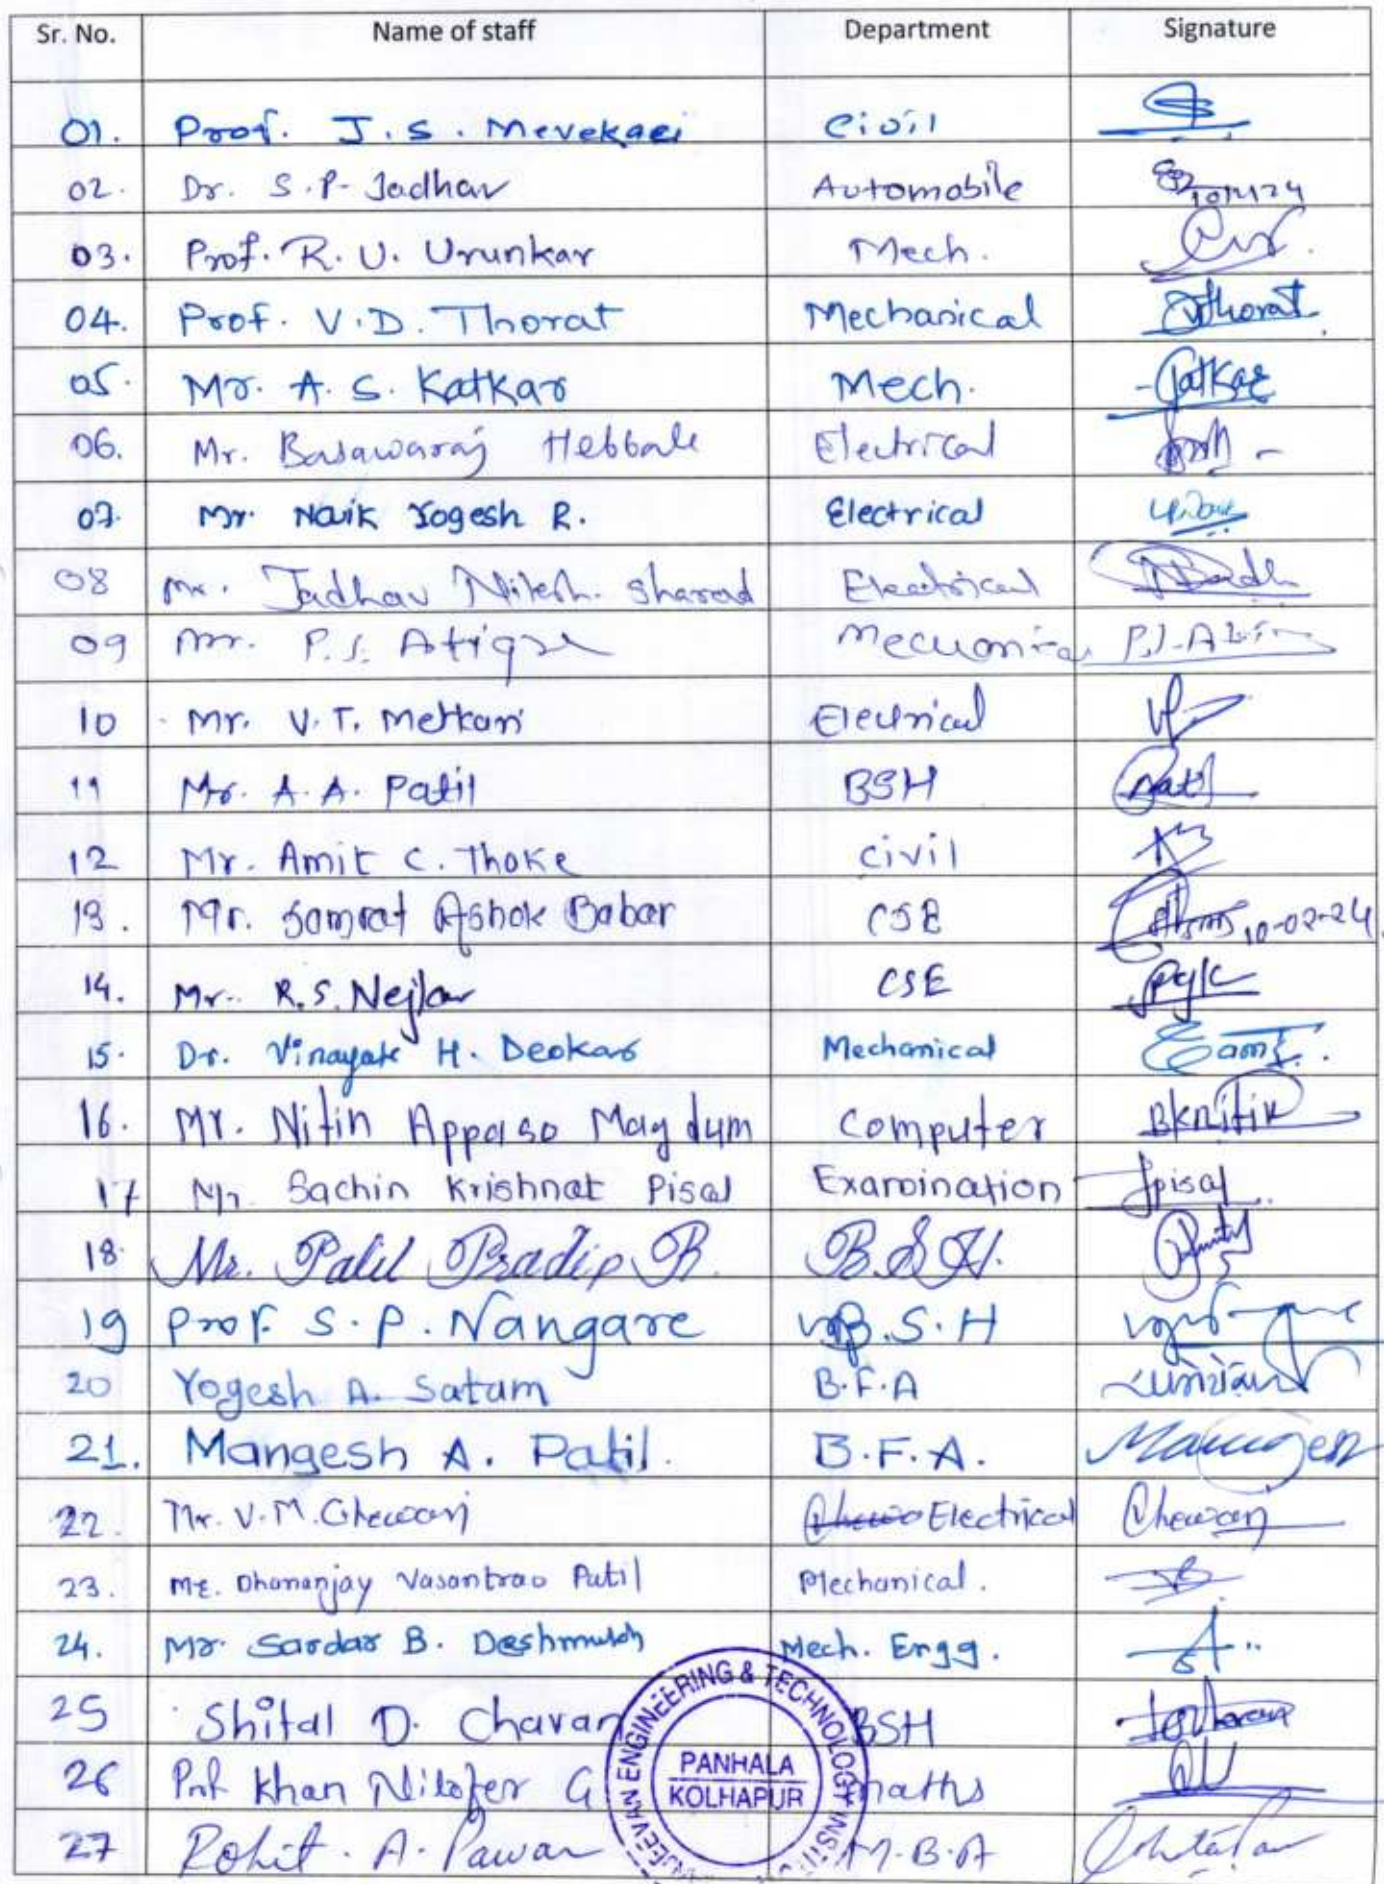 Sr. No. Name of staff Department Signature
01. Prof. J. S. Mevekari Civil
02. Dr. S. P. Jadhav Automobile
03. Prof. R. U. Urunkar Mech.
04. Prof. V. D. Thorat Mechanical Thorat
05. Mr. A. S. Katkar Mech. Katkar
06. Mr. Basawaraj Hebbale Electrical
07. Mr. Naik Yogesh R. Electrical
08 Mr. Jadhav Nilesh. Sharad Electrical
09 Mr. P. S. Atique
10 Mr. V. T. Metkari Electrical
11 Mr. A. A. Patil BSH
12 Mr. Amit C. Thoke civil
13. Mr. Samrat Ashok Babar CSE 10-02-24
14. Mr. R. S. Nejkar CSE
15. Dr. Vinayak H. Deokar Mechanical
16. Mr. Nitin Appaso Magdum Computer
17 Mr. Sachin Krishnat Pisal Examination Spisal
18. Mr. Patil Pradip R. B.S.H.
19 Prof. S. P. Nangare B.S.H
20 Yogesh A. Satam B.F.A
21. Mangesh A. Patil. B.F.A. Mangesh
22. Mr. V. M. Chewan Electrical Chewan
23. Mr. Dhananjay Vasantrao Patil Mechanical.
24. Mr. Sardar B. Deshmukh Mech. Engg.
25 Shital D. Chavan BSH
26 Prof Khan Nilofer G Maths
27 Rohit. A. Pawar M.B.A
ENGINEERING & TECHNOLOGY
PANHALA
KOLHAPUR